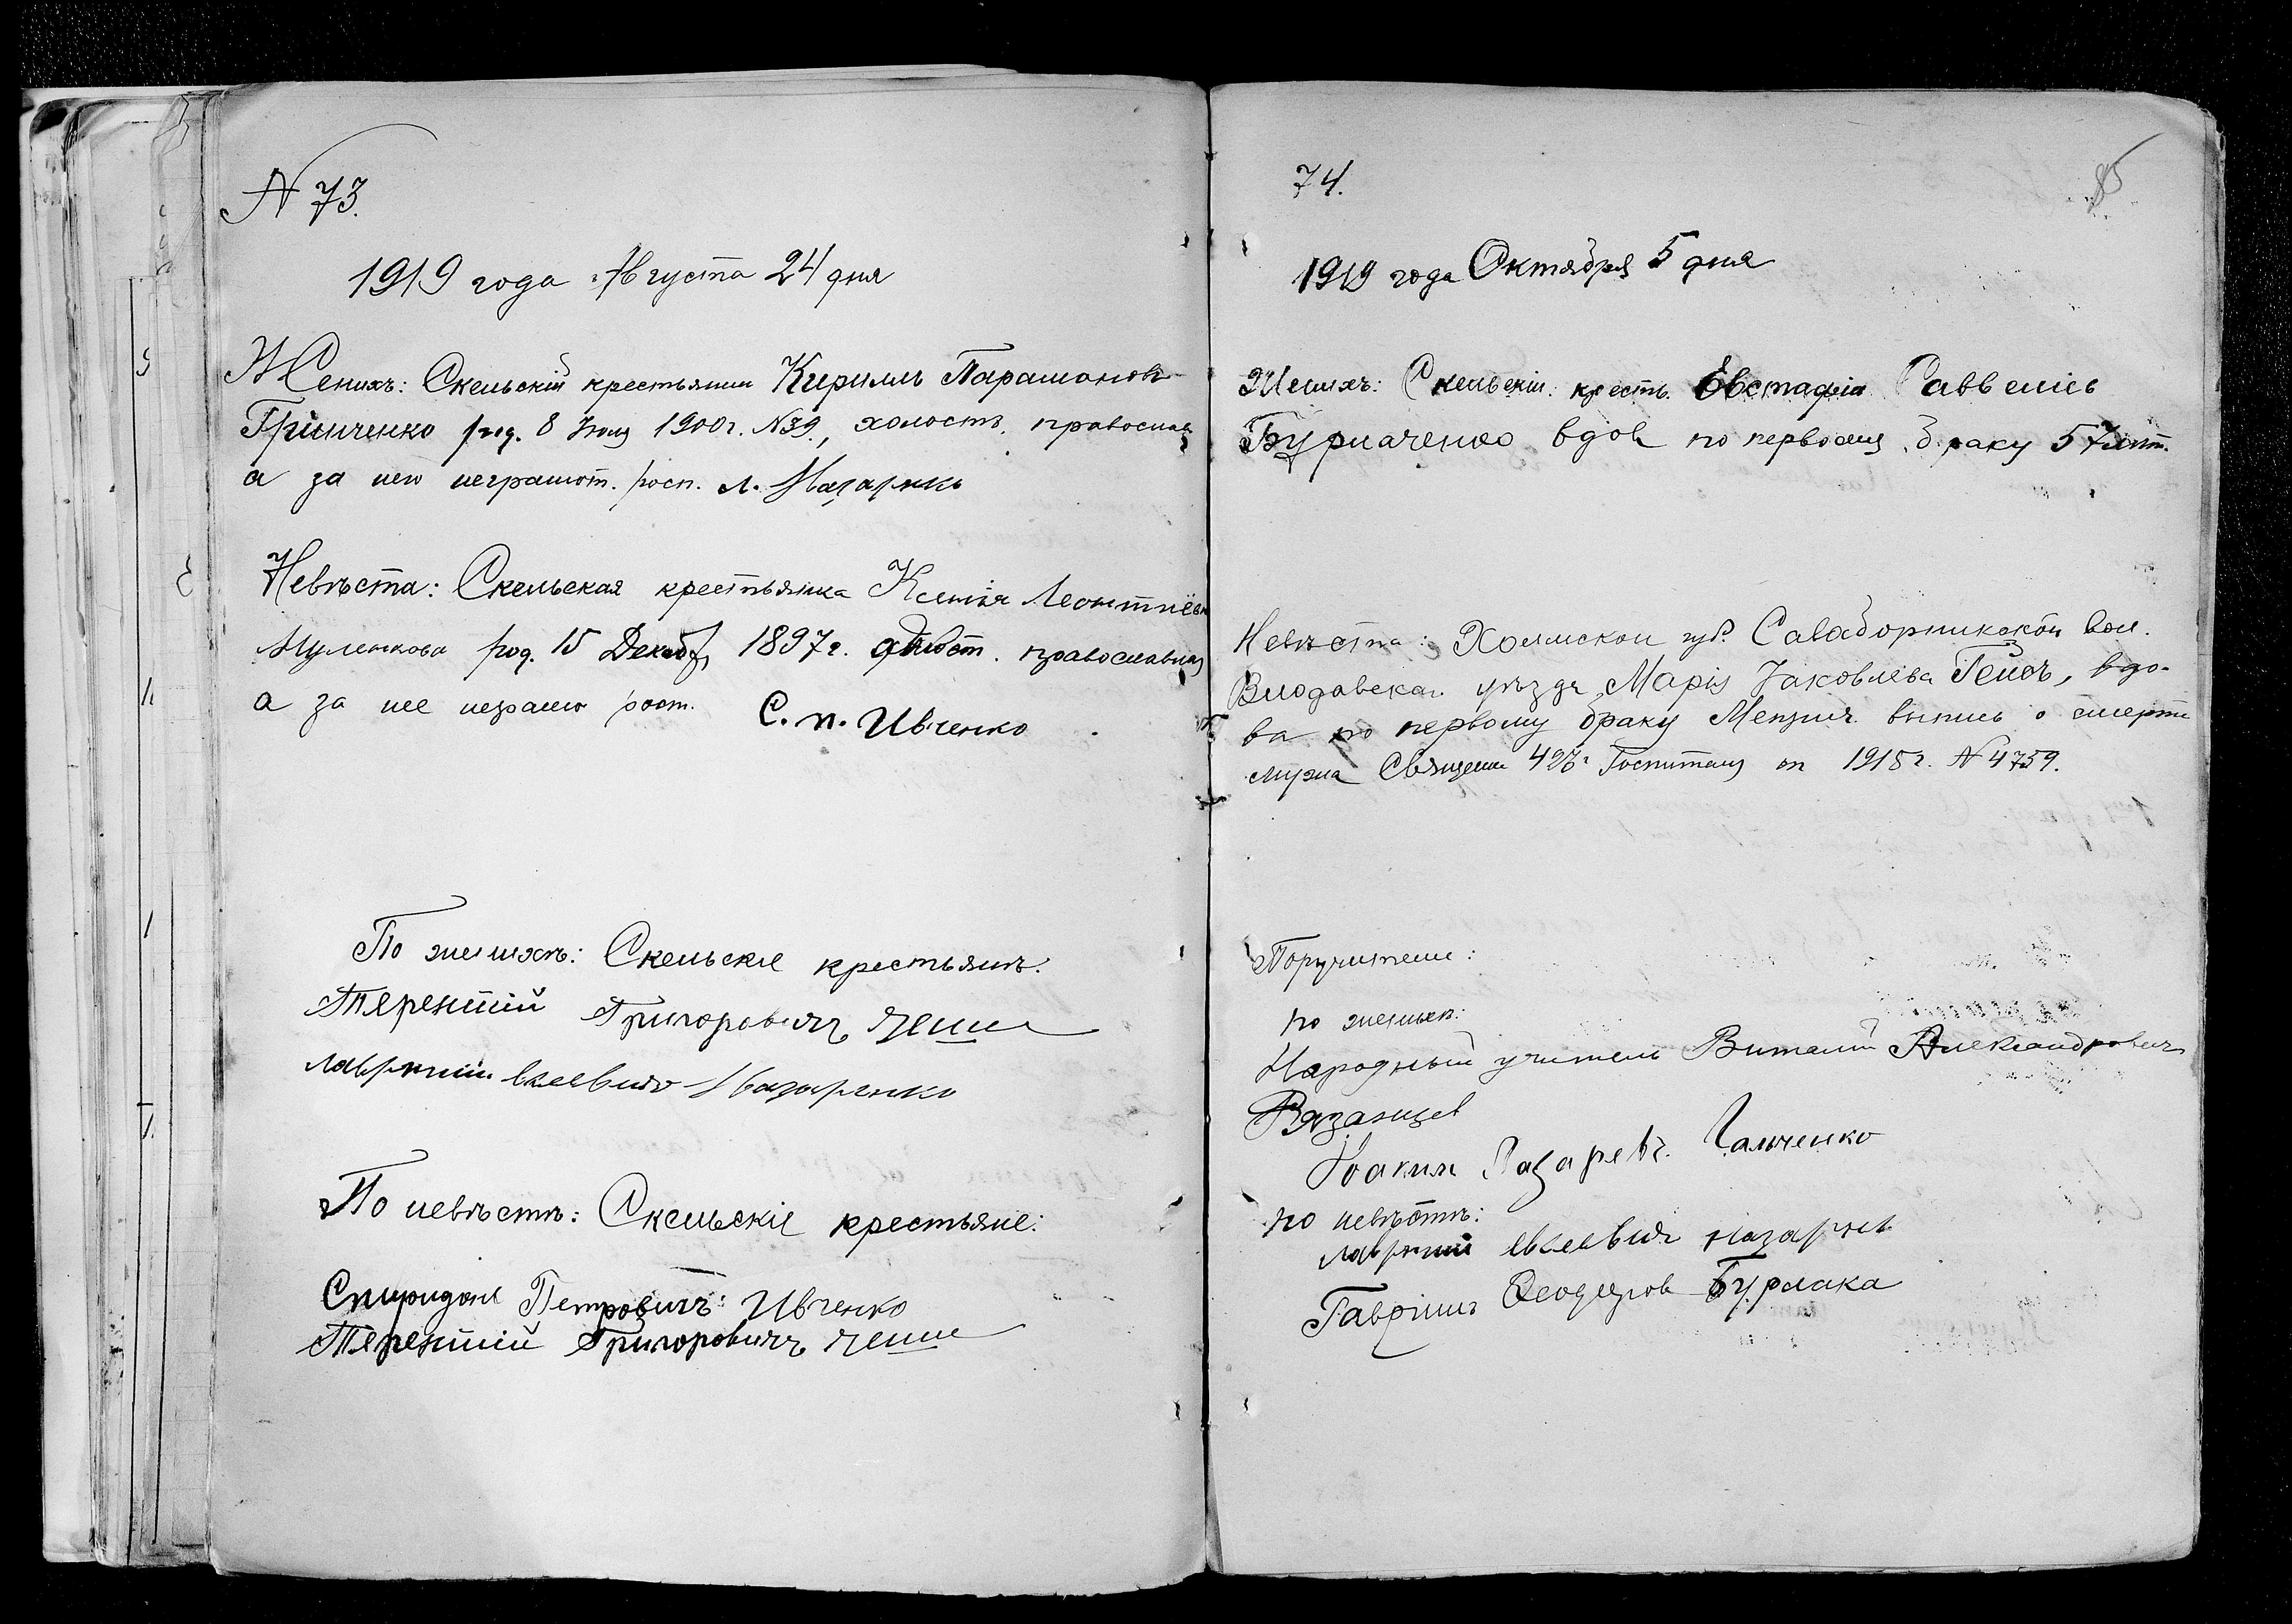 N 73.
1919 года Августа 24 дня
Женихъ: Скельскій крестьянин Кириллъ Парамонов
Гринченко род. 8 Іюля 1900 г. N39., холостъ. православ
а за него неграмот. росп. Л. Назаренко
Невѣста: Скельская крестьянка Ксенія Леонтіев
Муленкова род. 15 Декаб. 1897 г. православная
а за нее неграмо росп. С. П. Ивченко
По женихѣ: Скельскіе крестьянѣ:
Терентій Григоровичъ
Лаврентий Евсеевич Назаренко
По невѣстѣ: Скельскіе крестьяне:
Спиридонъ Петровичъ Ивченко
Терентій Григоровичъ
74.
85
1919 года Октября 5 дня
Женихъ: Скельскій кресть. Евстафій Саввеліев
Бурлаченко вдов по первому браку 57 лѣт.
Невѣста: Холмской губ. вол.
Влодавска уѣзда Марія Іаковлева вдо-
ва по первому браку выпись о смерти
мужа Священ Госпиталя от 1915 г. N 4759.
Поручители:
по женихѣ:
Народный учитель Виталий Александрович
Рязанцев
Иоаким Лазарев. Гальченко
по невѣстѣ:
Лаврентий Евсеевич Назаренко
Гавріилъ Феодоров Бурлака